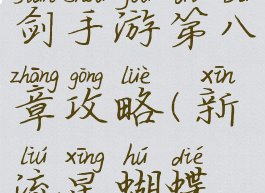 剑手游第八
zhāng gōng lüè xīn
章攻略(新
liú xīng hú dié
流星蝴蝶